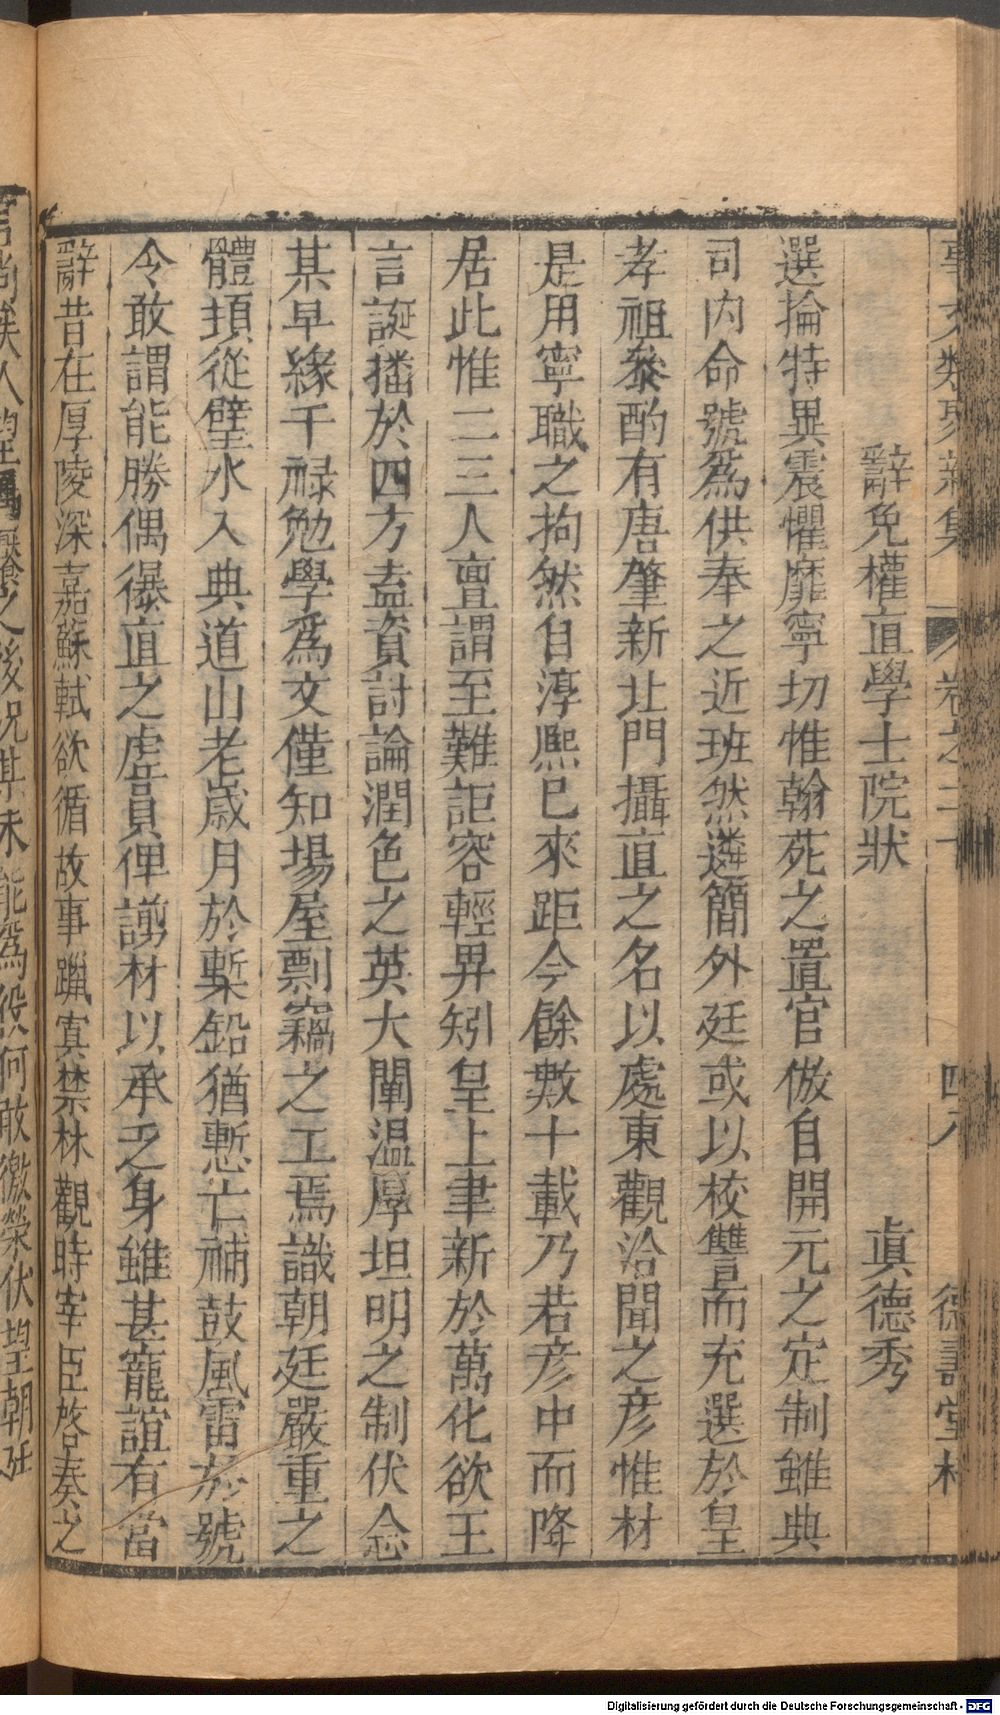 事文類聚新集 卷之二十 四八 德壽堂梓
辭免權直學士院狀 眞德秀
選掄特異震懼靡寧切惟翰苑之置官倣自開元之定制雖典
司内命號爲供奉之近班然遴簡外廷或以校讐而充選於皇
孝祖叅酌有唐肇新北門攝直之名以處東觀洽聞之彦惟材
是用寧職之拘然自淳熙已來距今餘數十載乃若彦中而降
居此惟二三人亶謂至難詎容輕畀矧皇上聿新於萬化欲王
言誕播於四方盍資討論潤色之英大闡温厚坦明之制伏念
某早緣干禄勉學爲文僅知場屋剽竊之工焉識朝廷嚴重之
體頃從璧水入典道山老歲月於槧鉛猶慙亡補鼓風雷於號
令敢謂能勝偶徯直之虚員俾謭材以承乏身雖甚寵誼有當
辭昔在厚陵深嘉蘇軾欲循故事躐寘禁林觀時宰臣啓奏之
後況某未能爲役何敢徼榮伏望朝廷
Digitalisierung gefördert durch die Deutsche Forschungsgemeinschaft - DFG